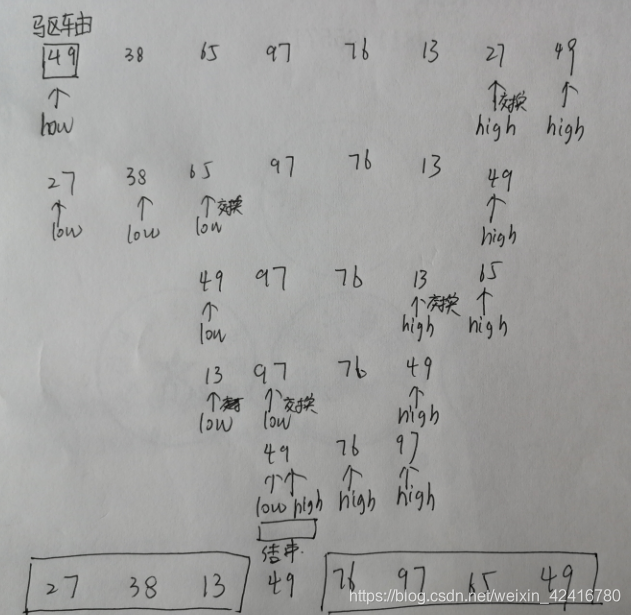 49 38 65 97 76 13 27 49
交换
low high high
27 38 65 97 76 13 49
交换
low low low high
49 97 76 13 65
交换
low high high
13 97 76 49
交换
low low high
49 76 97
low high high high
结束.
27 38 13 49 76 97 65 49
https://blog.csdn.net/weixin_42416780